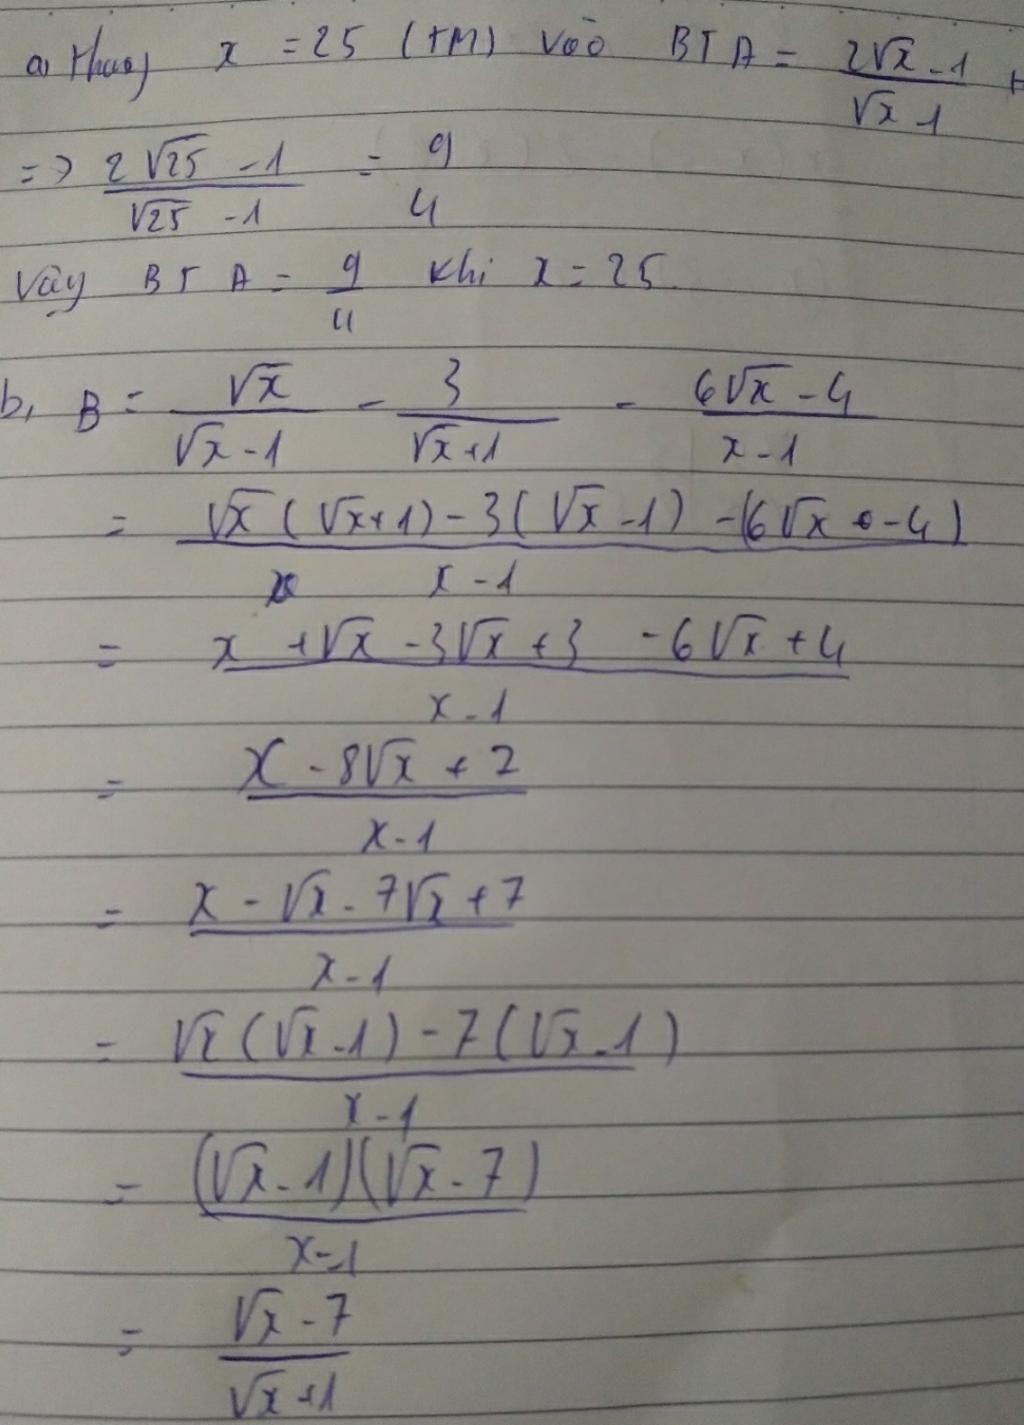 a, thay x = 25 (TM) vào BT A = (2√x - 1)/(√x - 1)
=> (2√25 - 1)/(√25 - 1) = 9/4
Vậy BT A = 9/4 khi x = 25.
b, B = √x/(√x - 1) - 3/(√x + 1) - (6√x - 4)/(x - 1)
= (√x(√x + 1) - 3(√x - 1) - (6√x - 4))/(x - 1)
= (x + √x - 3√x + 3 - 6√x + 4)/(x - 1)
= (x - 8√x + 7)/(x - 1)
= (x - √x - 7√x + 7)/(x - 1)
= (√x(√x - 1) - 7(√x - 1))/(x - 1)
= ((√x - 1)(√x - 7))/(x - 1)
= (√x - 7)/(√x + 1)